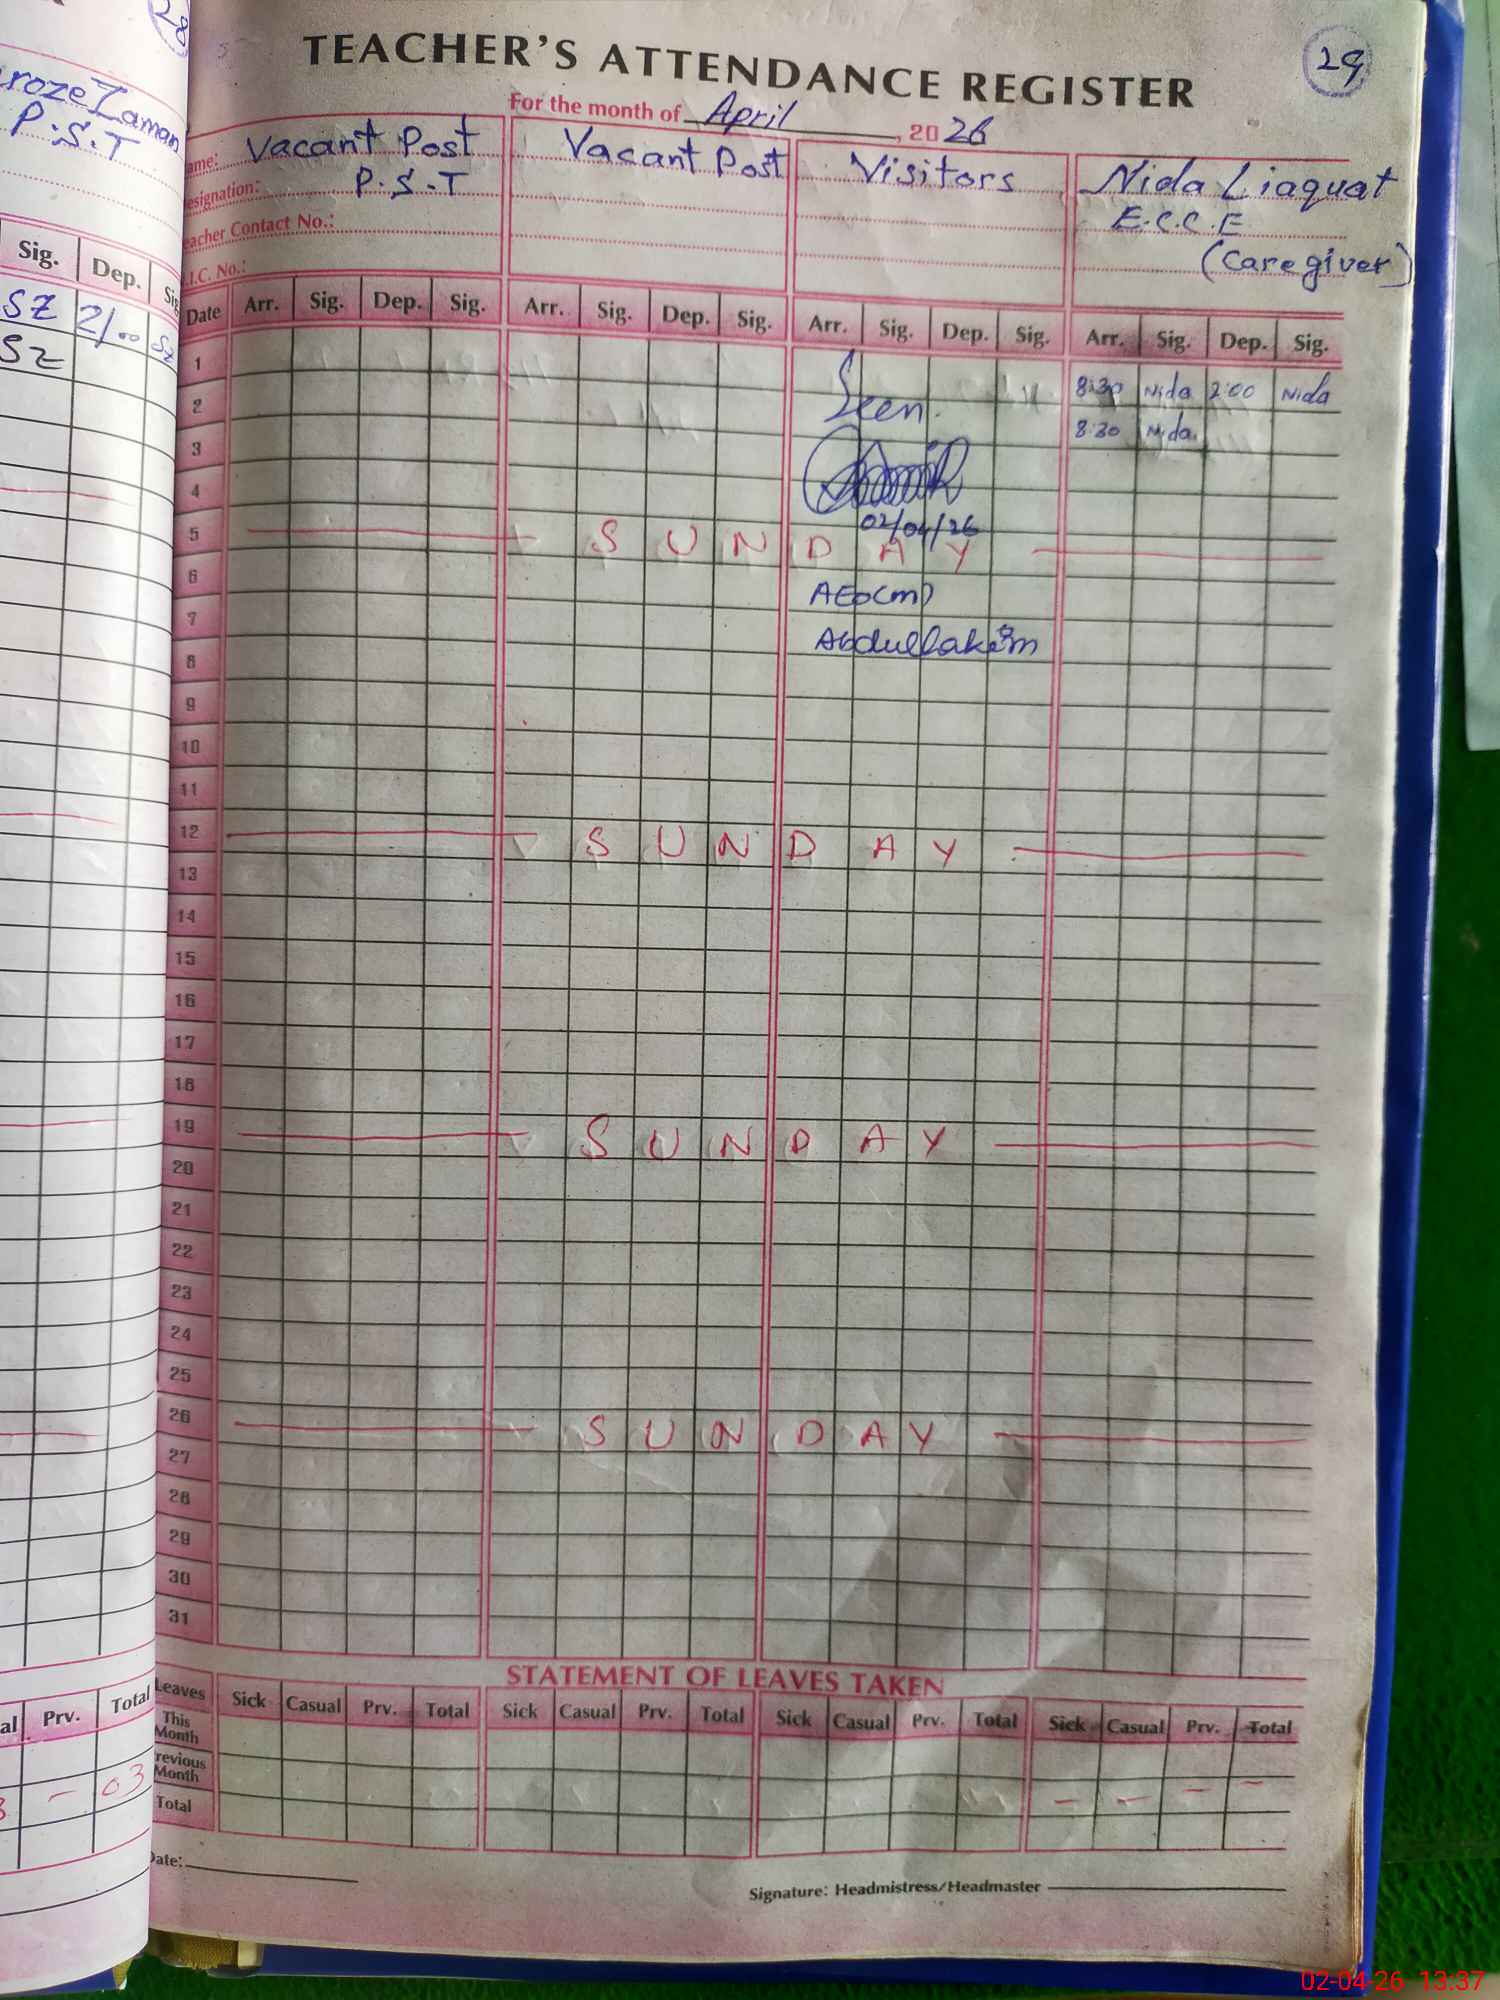 28
roze Zaman
P.S.T
Sig. Dep. Sig
SZ 2/00 SZ
SZ
al Prv. Total
- 03
TEACHER'S ATTENDANCE REGISTER
29
For the month of April, 2026
ame: Vacant Post Vacant Post Visitors Nida Liaquat
esignation: P.S.T E.C.C.E
eacher Contact No.: (Caregiver)
.I.C. No.:
Date Arr. Sig. Dep. Sig. Arr. Sig. Dep. Sig. Arr. Sig. Dep. Sig. Arr. Sig. Dep. Sig.
1 8:30 Nida 2:00 Nida
2 Seen. 8:30 Nida
3
4
02/04/26
5 SUNDAY
6 AEO(m)
7
8
9
10
11
12 SUNDAY
13
14
15
16
17
18
19 SUNDAY
20
21
22
23
24
25
26 SUNDAY
27
28
29
30
31
STATEMENT OF LEAVES TAKEN
Leaves Sick Casual Prv. Total Sick Casual Prv. Total Sick Casual Prv. Total Sick Casual Prv. Total
This Month
revious Month - - - -
Total
Date:
Signature: Headmistress/Headmaster
02-04-26 13:37